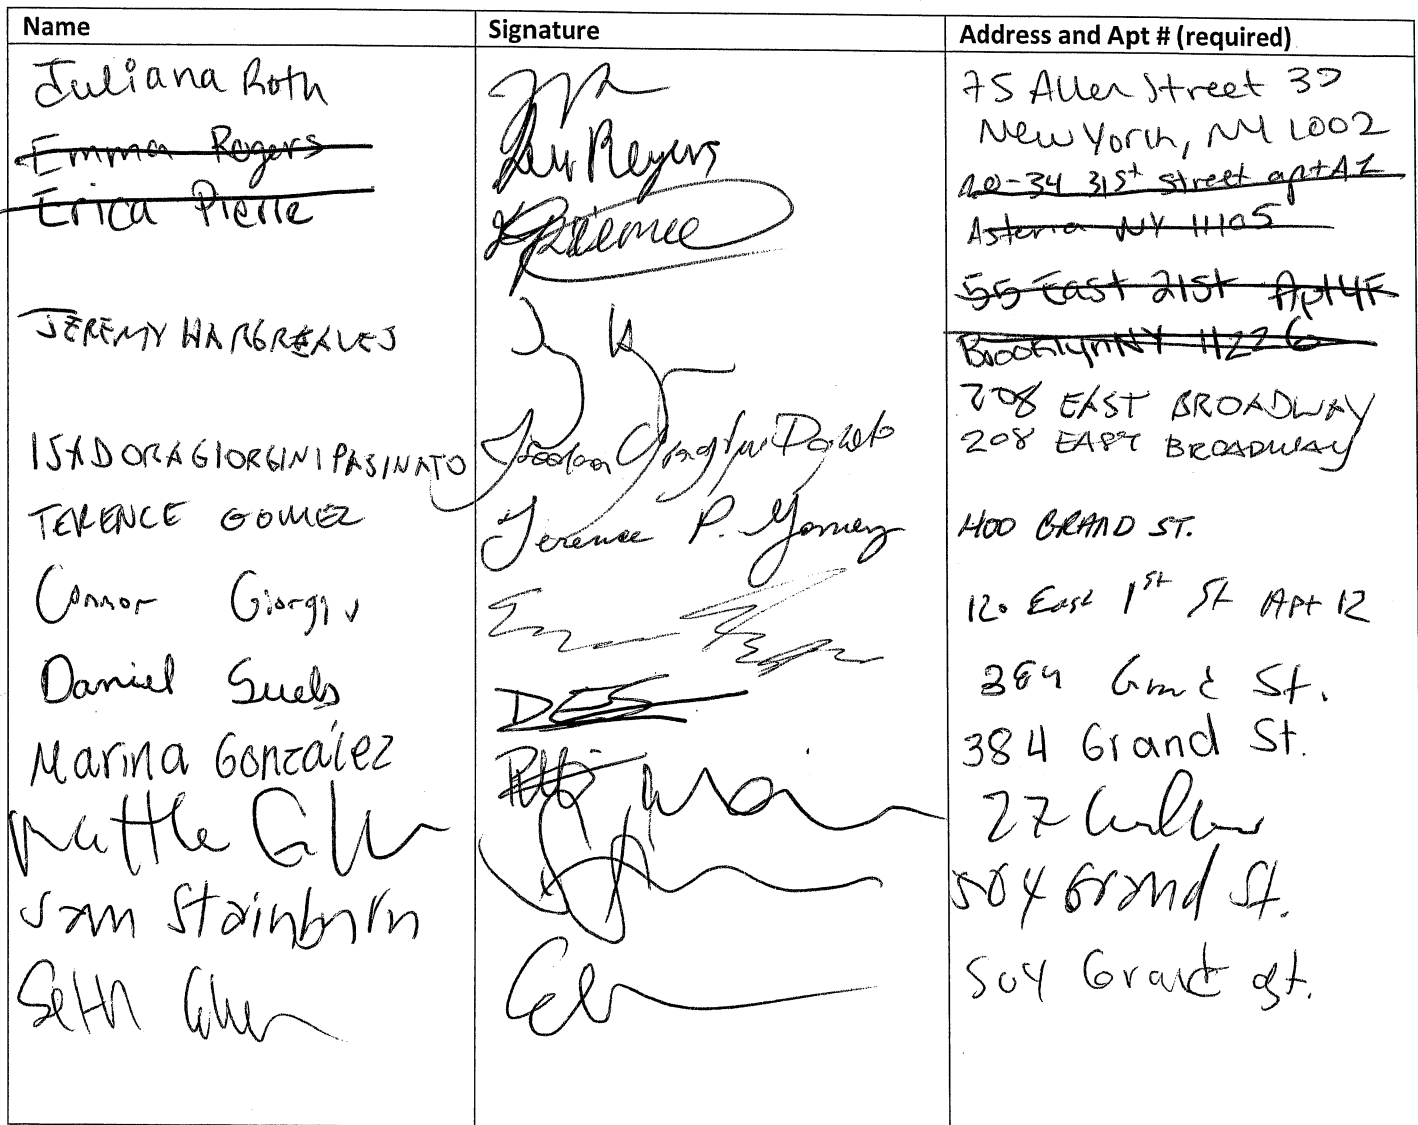 Name Signature Address and Apt # (required)
Juliana Roth 75 Allen Street 3D
New York, NY 1002
Emma Rogers
20-34 31st street apt A2
Erica Pierre
Astoria NY 11105
55 East 21st Apt 4F
JEREMY HARGREAVES Brooklyn NY 11226
208 EAST BROADWAY
ISADORA GIORGINI PASINATO 208 EAST BROADWAY
TERENCE GOMEZ Terence P. Gomez 400 GRAND ST.
Connor 120 East 1st St Apt 12
Daniel 384 Grand St.
Marina González 384 Grand St.
27
Sam Stainburn 504 Grand St.
Seth 504 Grand St.